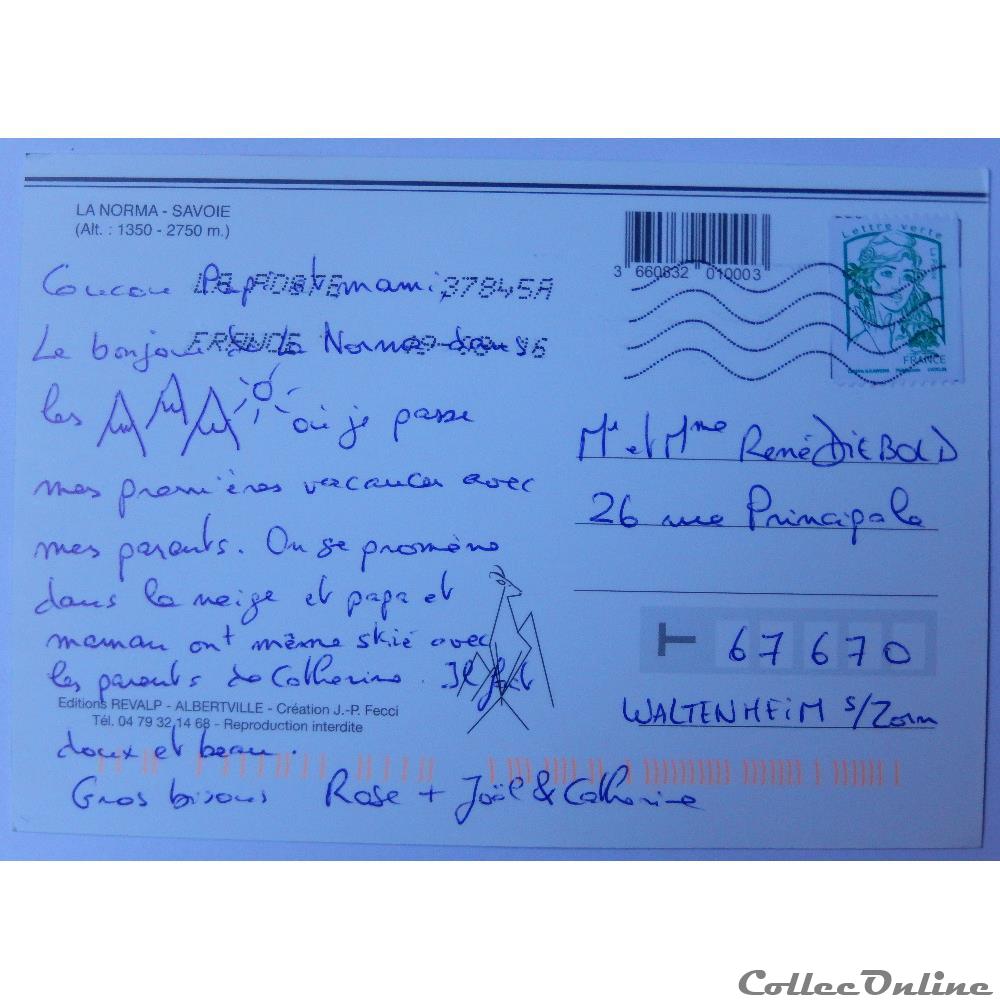 LA NORMA - SAVOIE
(Alt. : 1350 - 2750 m.)
Coucou Papi et mami
Le bonjour de la Norma dans
les où je passe
mes premières vacances avec
mes parents. On se promène
dans la neige et papa et
maman ont même skié avec
les parents de Catherine. Il fait
Editions REVALP - ALBERTVILLE - Création J.-P. Fecci
Tél. 04 79 32 14 68 - Reproduction interdite
doux et beau.
Gros bisous Rose + Joël & Catherine
LA POSTE 37845A
FRANCE
3 660832 010003
Lettre verte
FRANCE
Mr et Mme René DIEBOLD
26 rue Principale
T 67670
WALTENHEIM s/Zorn
CollecOnline